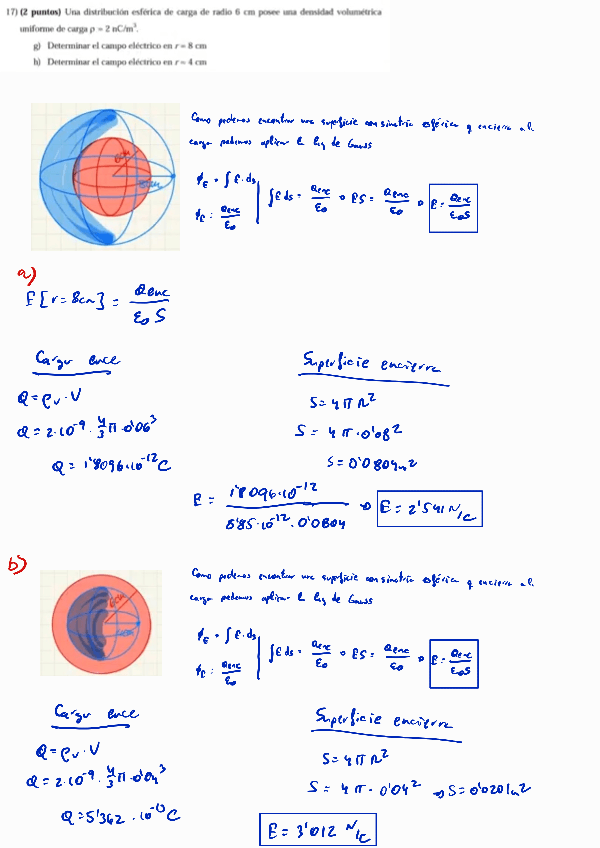 17) (2 puntos) Una distribución esférica de carga de radio 6 cm posee una densidad volumétrica
uniforme de carga ρ = 2 nC/m³.
g) Determinar el campo eléctrico en r = 8 cm
h) Determinar el campo eléctrico en r = 4 cm
Como podemos encontrar una superficie con simetría esférica q encierra a la
carga podemos aplicar la ley de Gauss
6cm
8cm
ϕ_E = ∫ E · ds
ϕ_E = Qenc/ε₀
∫ E ds = Qenc/ε₀ ⇒ ES = Qenc/ε₀ ⇒ E = Qenc/ε₀S
a)
E [r = 8cm] = Qenc/ε₀ S
Carga ence
Q = ρv · V
Q = 2·10⁻⁹ · 4/3 π · 0'06³
Q = 1'8096·10⁻¹² C
Superficie encierra
S = 4π r²
S = 4π · 0'08²
S = 0'0804 m²
E = 1'8096·10⁻¹² / 8'85·10⁻¹² · 0'0804 ⇒ E = 2'541 N/C
b)
Como podemos encontrar una superficie con simetría esférica q encierra a la
carga podemos aplicar la ley de Gauss
6cm
4cm
ϕ_E = ∫ E · ds
ϕ_E = Qenc/ε₀
∫ E ds = Qenc/ε₀ ⇒ ES = Qenc/ε₀ ⇒ E = Qenc/ε₀S
Carga ence
Q = ρv · V
Q = 2·10⁻⁹ · 4/3 π · 0'04³
Q = 5'362 · 10⁻¹³ C
Superficie encierra
S = 4π r²
S = 4π · 0'04² ⇒ S = 0'0201 m²
E = 3'012 N/C